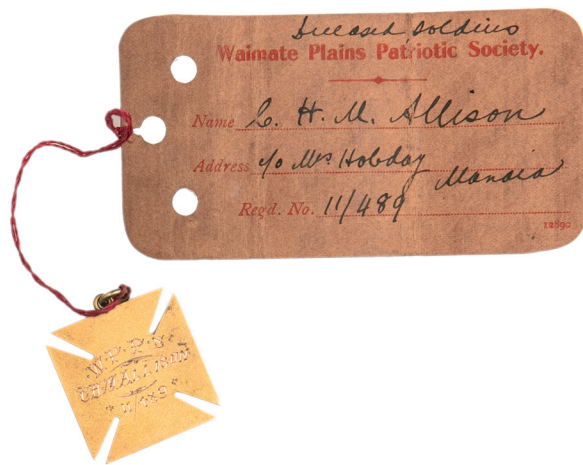 Deceased Soldiers
Waimate Plains Patriotic Society.
Name C. H. M. Allison
Address c/o Mrs Hobday
Manaia
Regd. No. 11/489
12890
W.P.P.S
C.H.M. ALLISON
11/489